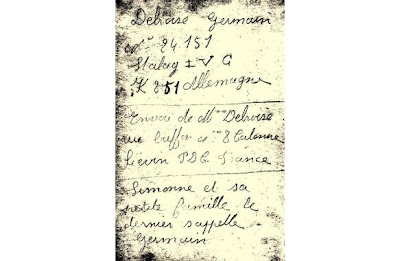 Delvoise Germain
n° 24.151
Stalag IV G
K 851 Allemagne
Envoi de Mme Delvoise
rue Buffon n° 8 Calonne
Lievin P.D.C. France
Simonne et sa
petite famille le
dernier s'appelle
Germain